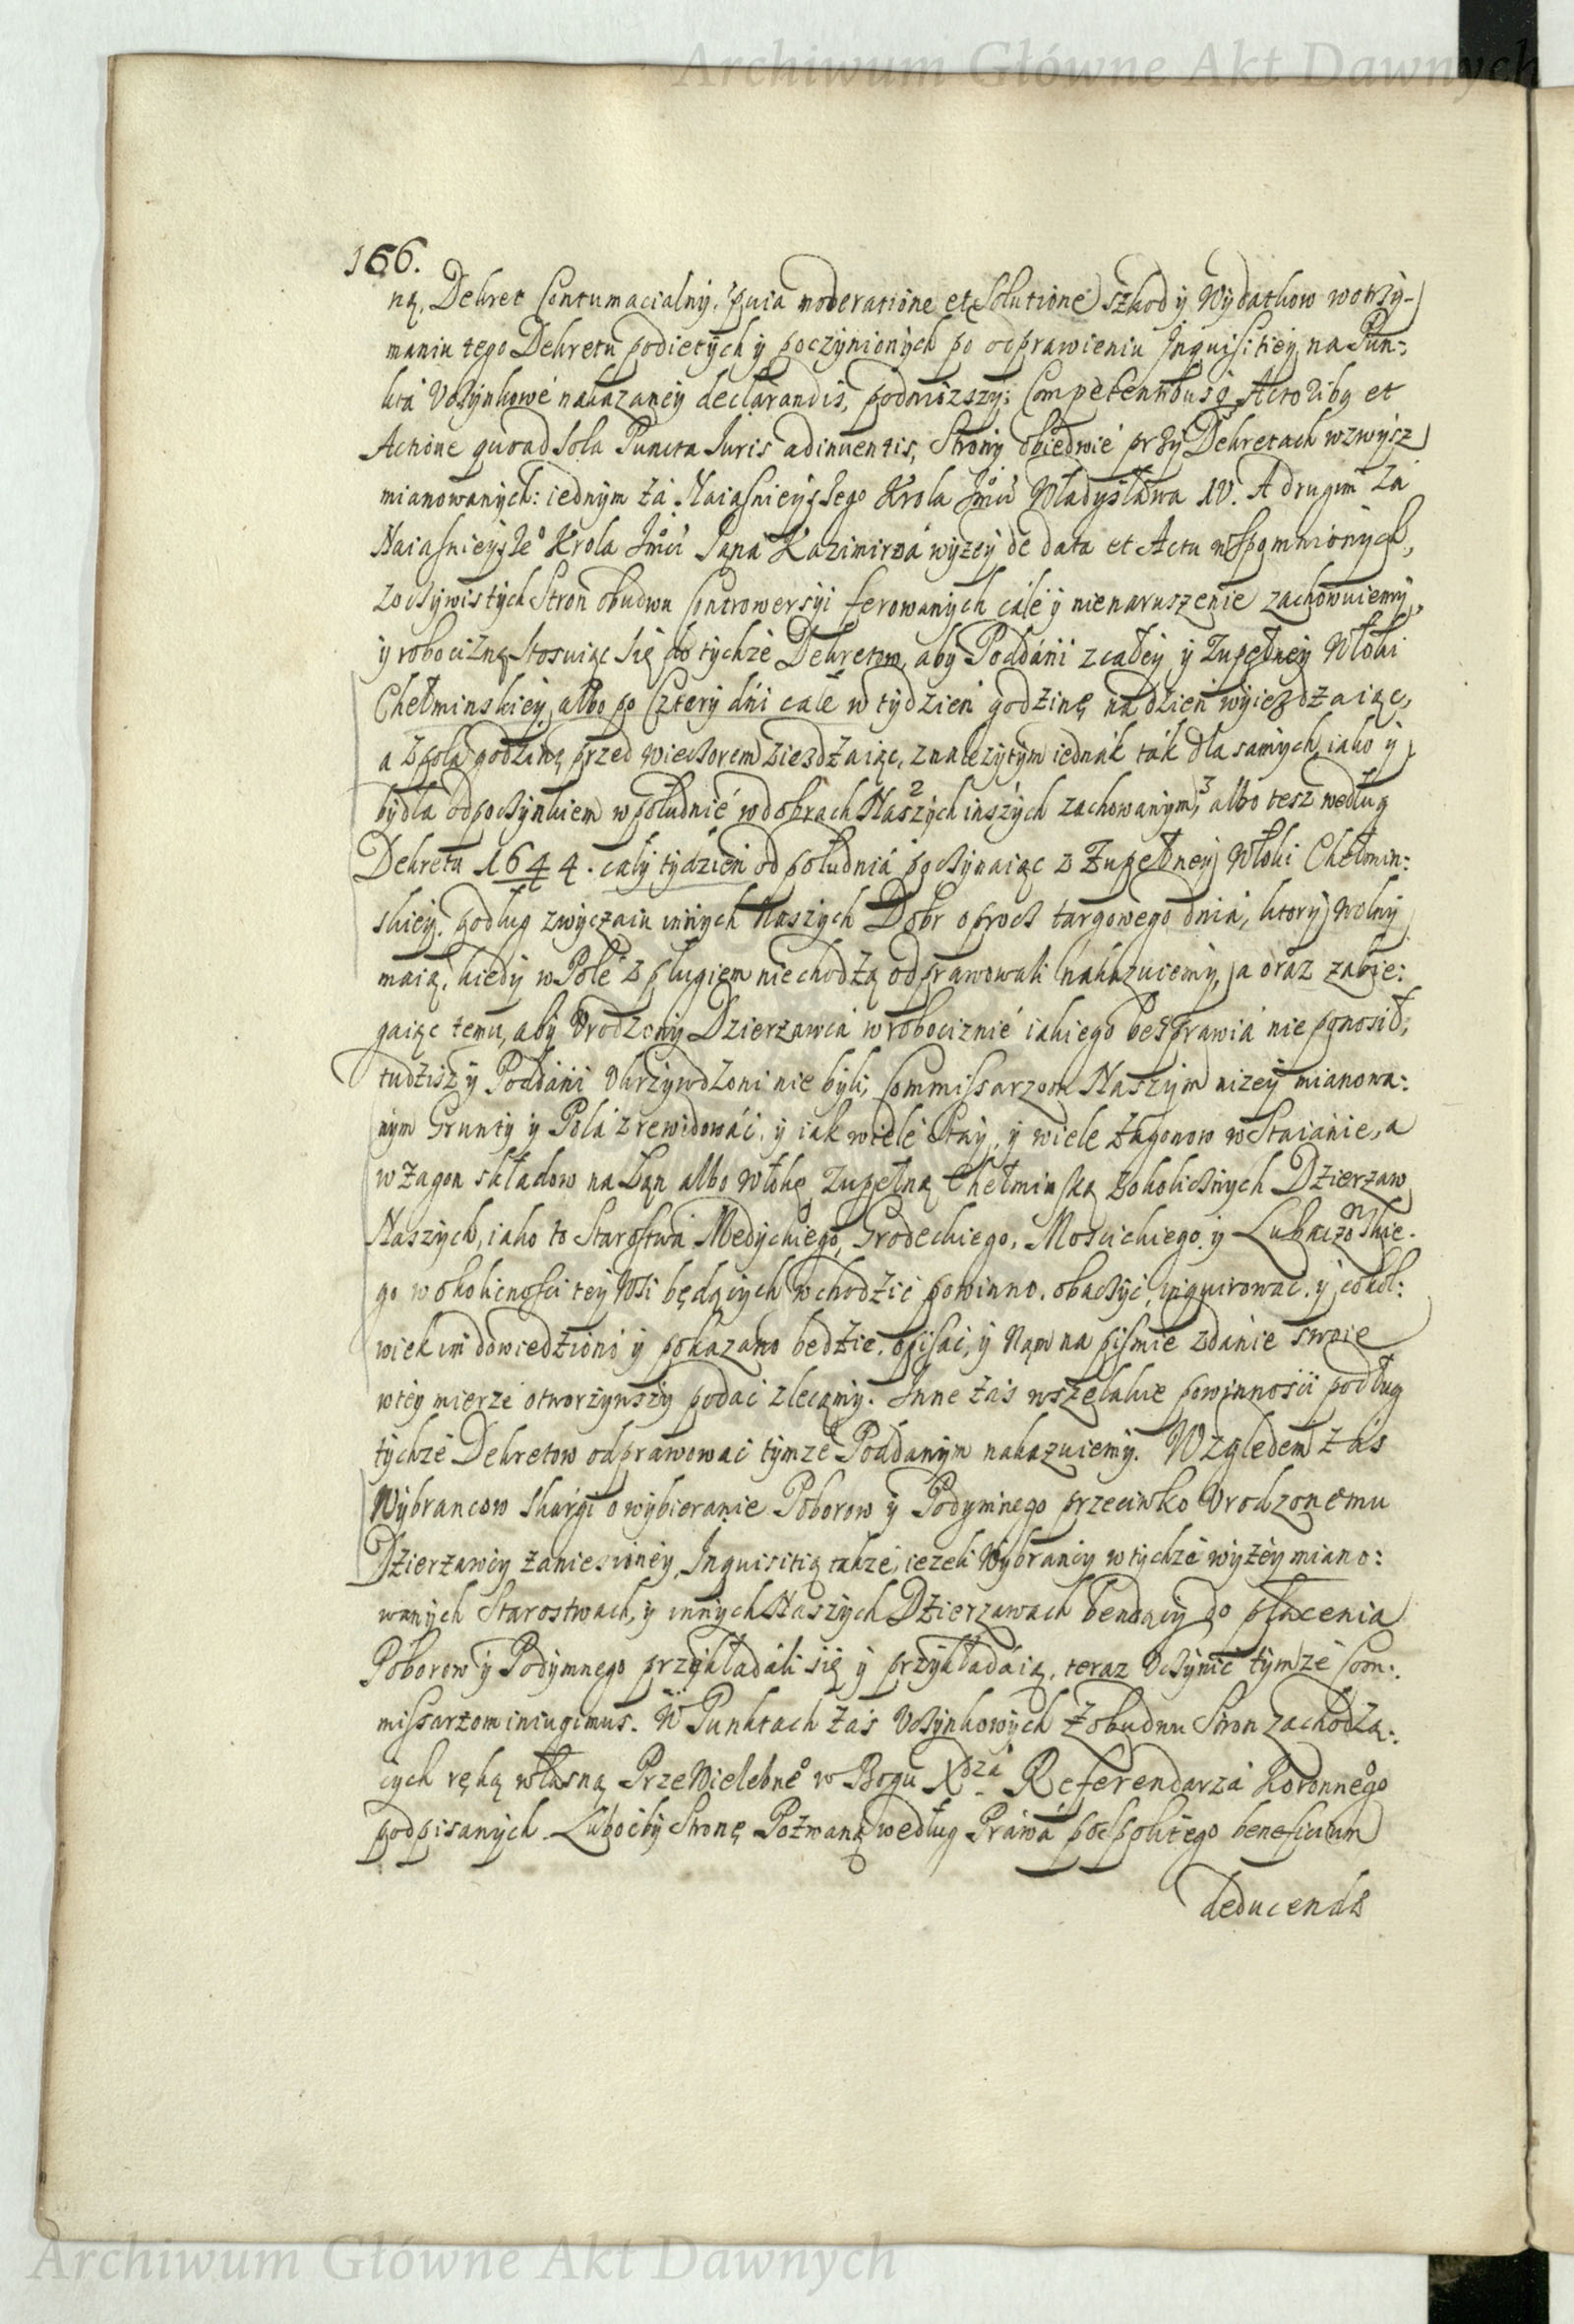 Archiwum Główne Akt Dawnych
166.
ną, Dekret Contumacialny, moderatione et Solutione szkod y Wydatkow wotrzy-
maniu tego Dekretu podietych y poczynionych po odprawieniu Inquisitiey na Pun-:
kta Uczynkowe nakazaney declarandis, podniozszy: Competentibusq Actoribq et
Actione quoad Sola Puncta Juris adinuentis, Strony obiedwie przy Dekretach wzwysz
mianowanych: iednym za Naiasnieyszego Krola Jmći Władysława IV. A drugim za
Naiasnieysze° Krola Jmći Jana Kazimirza wyzey de data et Actu wspomnionych,
zoczywistych Stron obudwu Controwersyi ferowanych cale y nienaruszenie zachowuiemy,
y robociznę Stosuiąc się do tychże Dekretow, aby Poddani zcałey y Zupełney Włoki
Chełminskiey, albo po Cztery dni całe w tydzień godzinę na dzień wyiezdżaiąc,
a zpołą godzinę przed wieczorem ziezdżaiąc, znależytym iednak tak dla samych, iako y
bydła odpoczynkiem w południe wdobrach Naszych inszych zachowanym, albo tesz według
Dekretu 1644. cały tydzien od południa poczynaiąc z Zupełney Włoki Chełmin:
skiey, podlug zwyczaiu innych Naszych Dobr oprocz targowego dnia, ktory wolny
maią, kiedy w Pole z plugiem niechodzą odprawowali nakazuiemy, a oraz zabie:
gaiąc temu, aby Urodzony Dzierzawca w robociznie iakiego besprawia nie ponosił,
tudzisz y Poddani Ukrzywdzoni nie byli, Commissarzom Naszym nizey mianowa:
nym Grunty y Pola zrewidować, y iak wiele Stay, y wiele Zagonow w Staianie, a
w Zagon składow na Łan albo Włokę Zupełną Chełminską zokolicznych Dzierzaw
Naszych, iako to Starostwa Medyckiego, Grodeckiego, Mościckiego y Lubaczo skie-
go w okolicności tey Wsi będących wchodzić powinno, obaczyć, inquirować, y cokol:
wiek im dowiedziono y pokazano bedzie, opisać, y Nam na piśmie zdanie swoie
wtey mierze otworzywszy podać zlecamy. Inne zaś wszelakie powinności podług
tychże Dekretow odprawować tymze Poddanym nakazuiemy. Względem zaś
Wybrancow Skargi o wybieranie Poborow y Podymnego przeciwko Urodzonemu
Dzierzawcy zaniesioney, Inquisitią takze, iezeli Wybrancy w tychże wyżey miano:
wanych Starostwach, y innych Naszych Dzierzawach bendący do płacenia
Poborow y Podymnego przykładali się y przykładaią, teraz Uczynić tymże Com:
missarzom iniugimus. W Punktach zaś Uczynkowych z obudwu Stron zachodzą:
cych ręką własną PrzeWielebne° w Bogu Xdza Referendarza Koronnego
podpisanych Luboćby Stronę Pozwaną według Prawa pospolitego beneficium
deducendi
Archiwum Główne Akt Dawnych